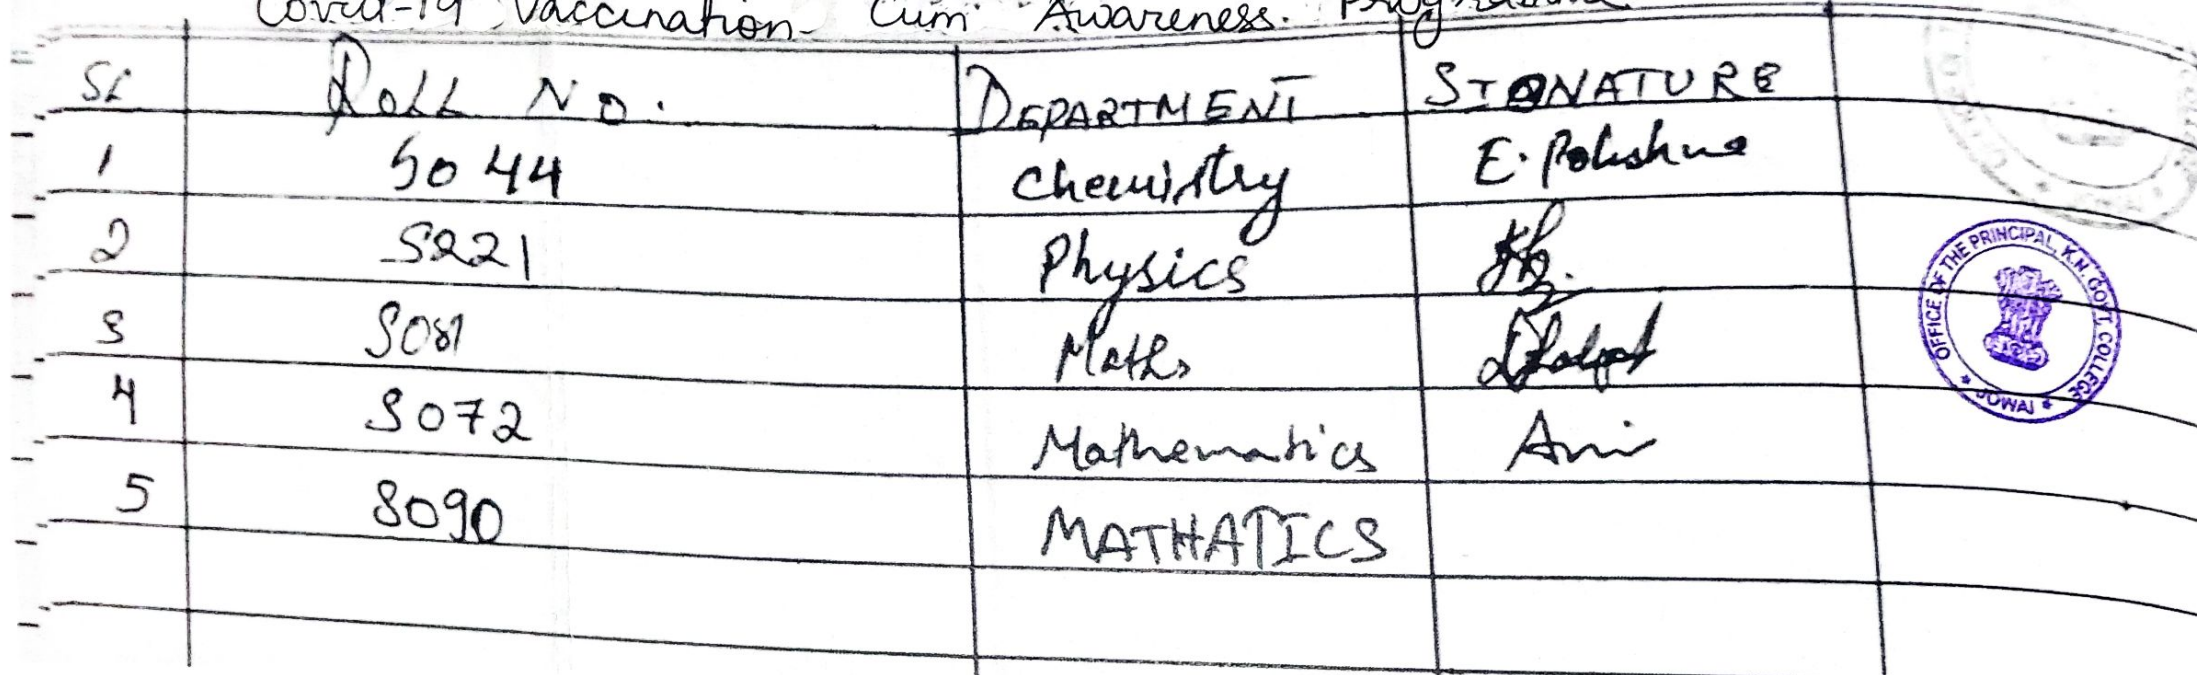 Covid-19 Vaccination Cum Awareness. Programme
SL Roll NO. DEPARTMENT SIGNATURE
1 S044 Chemistry
2 S221 Physics
3 S081 Maths
4 S072 Mathematics
5 S090 MATHATICS
OFFICE OF THE PRINCIPAL, K.N. GOVT. COLLEGE
* JOWAI *